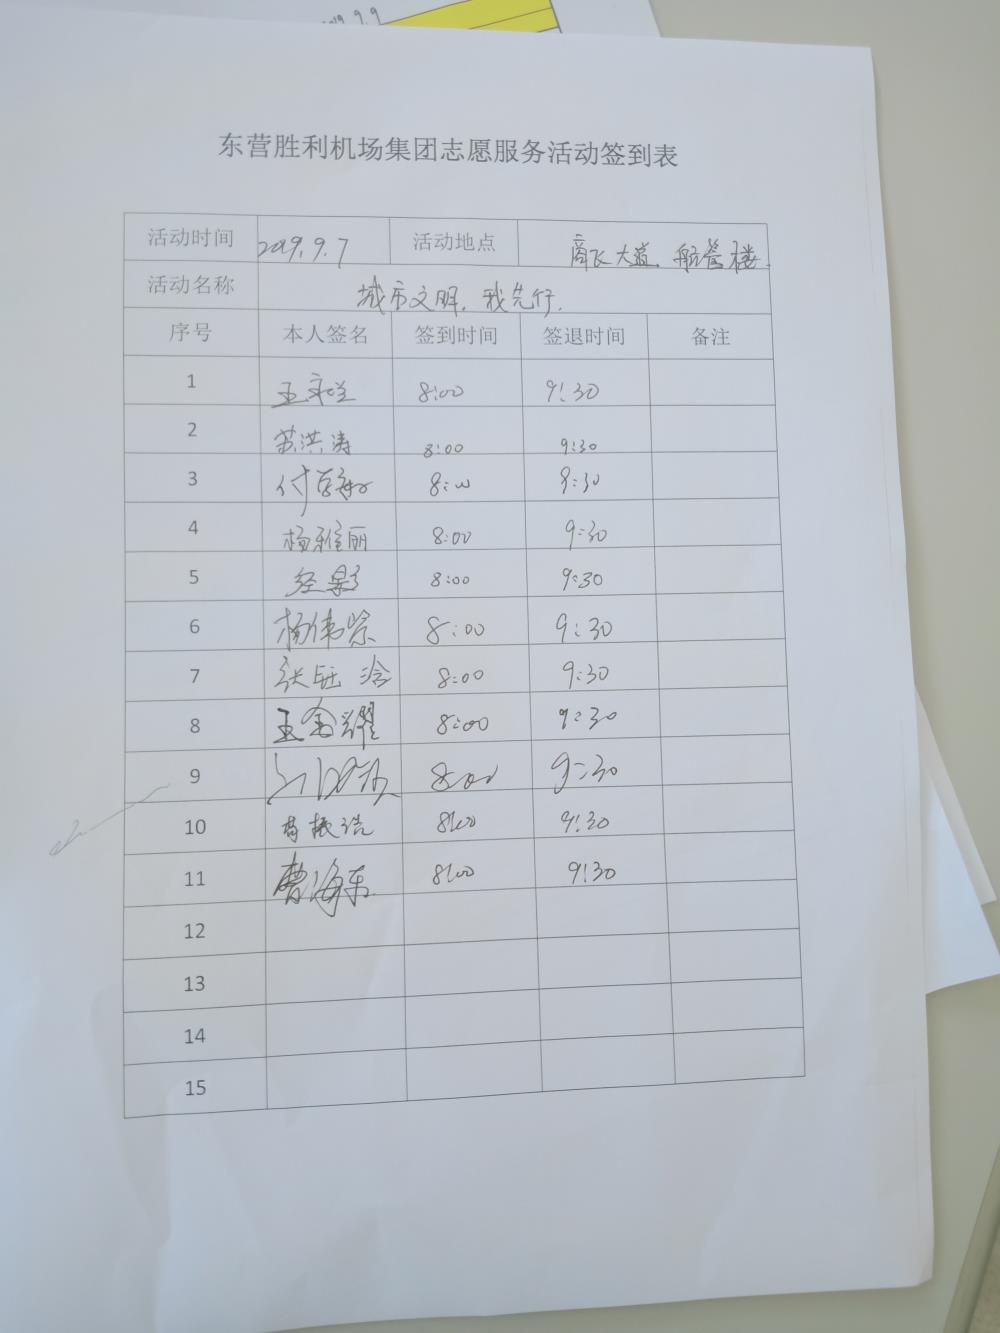 2019.9.9
东营胜利机场集团志愿服务活动签到表
活动时间 2019.9.7 活动地点 商飞大道、航管楼.
活动名称 城市文明,我先行.
序号 本人签名 签到时间 签退时间 备注
1 8:00 9:30
2 苏洪涛 8:00 9:30
3 8:00 9:30
4 杨雅丽 8:00 9:30
5 8:00 9:30
6 杨伟崇 8:00 9:30
7 8:00 9:30
8 王金耀 8:00 9:30
9 8:00 9:30
10 8:00 9:30
11 曹海东 8:00 9:30
12
13
14
15